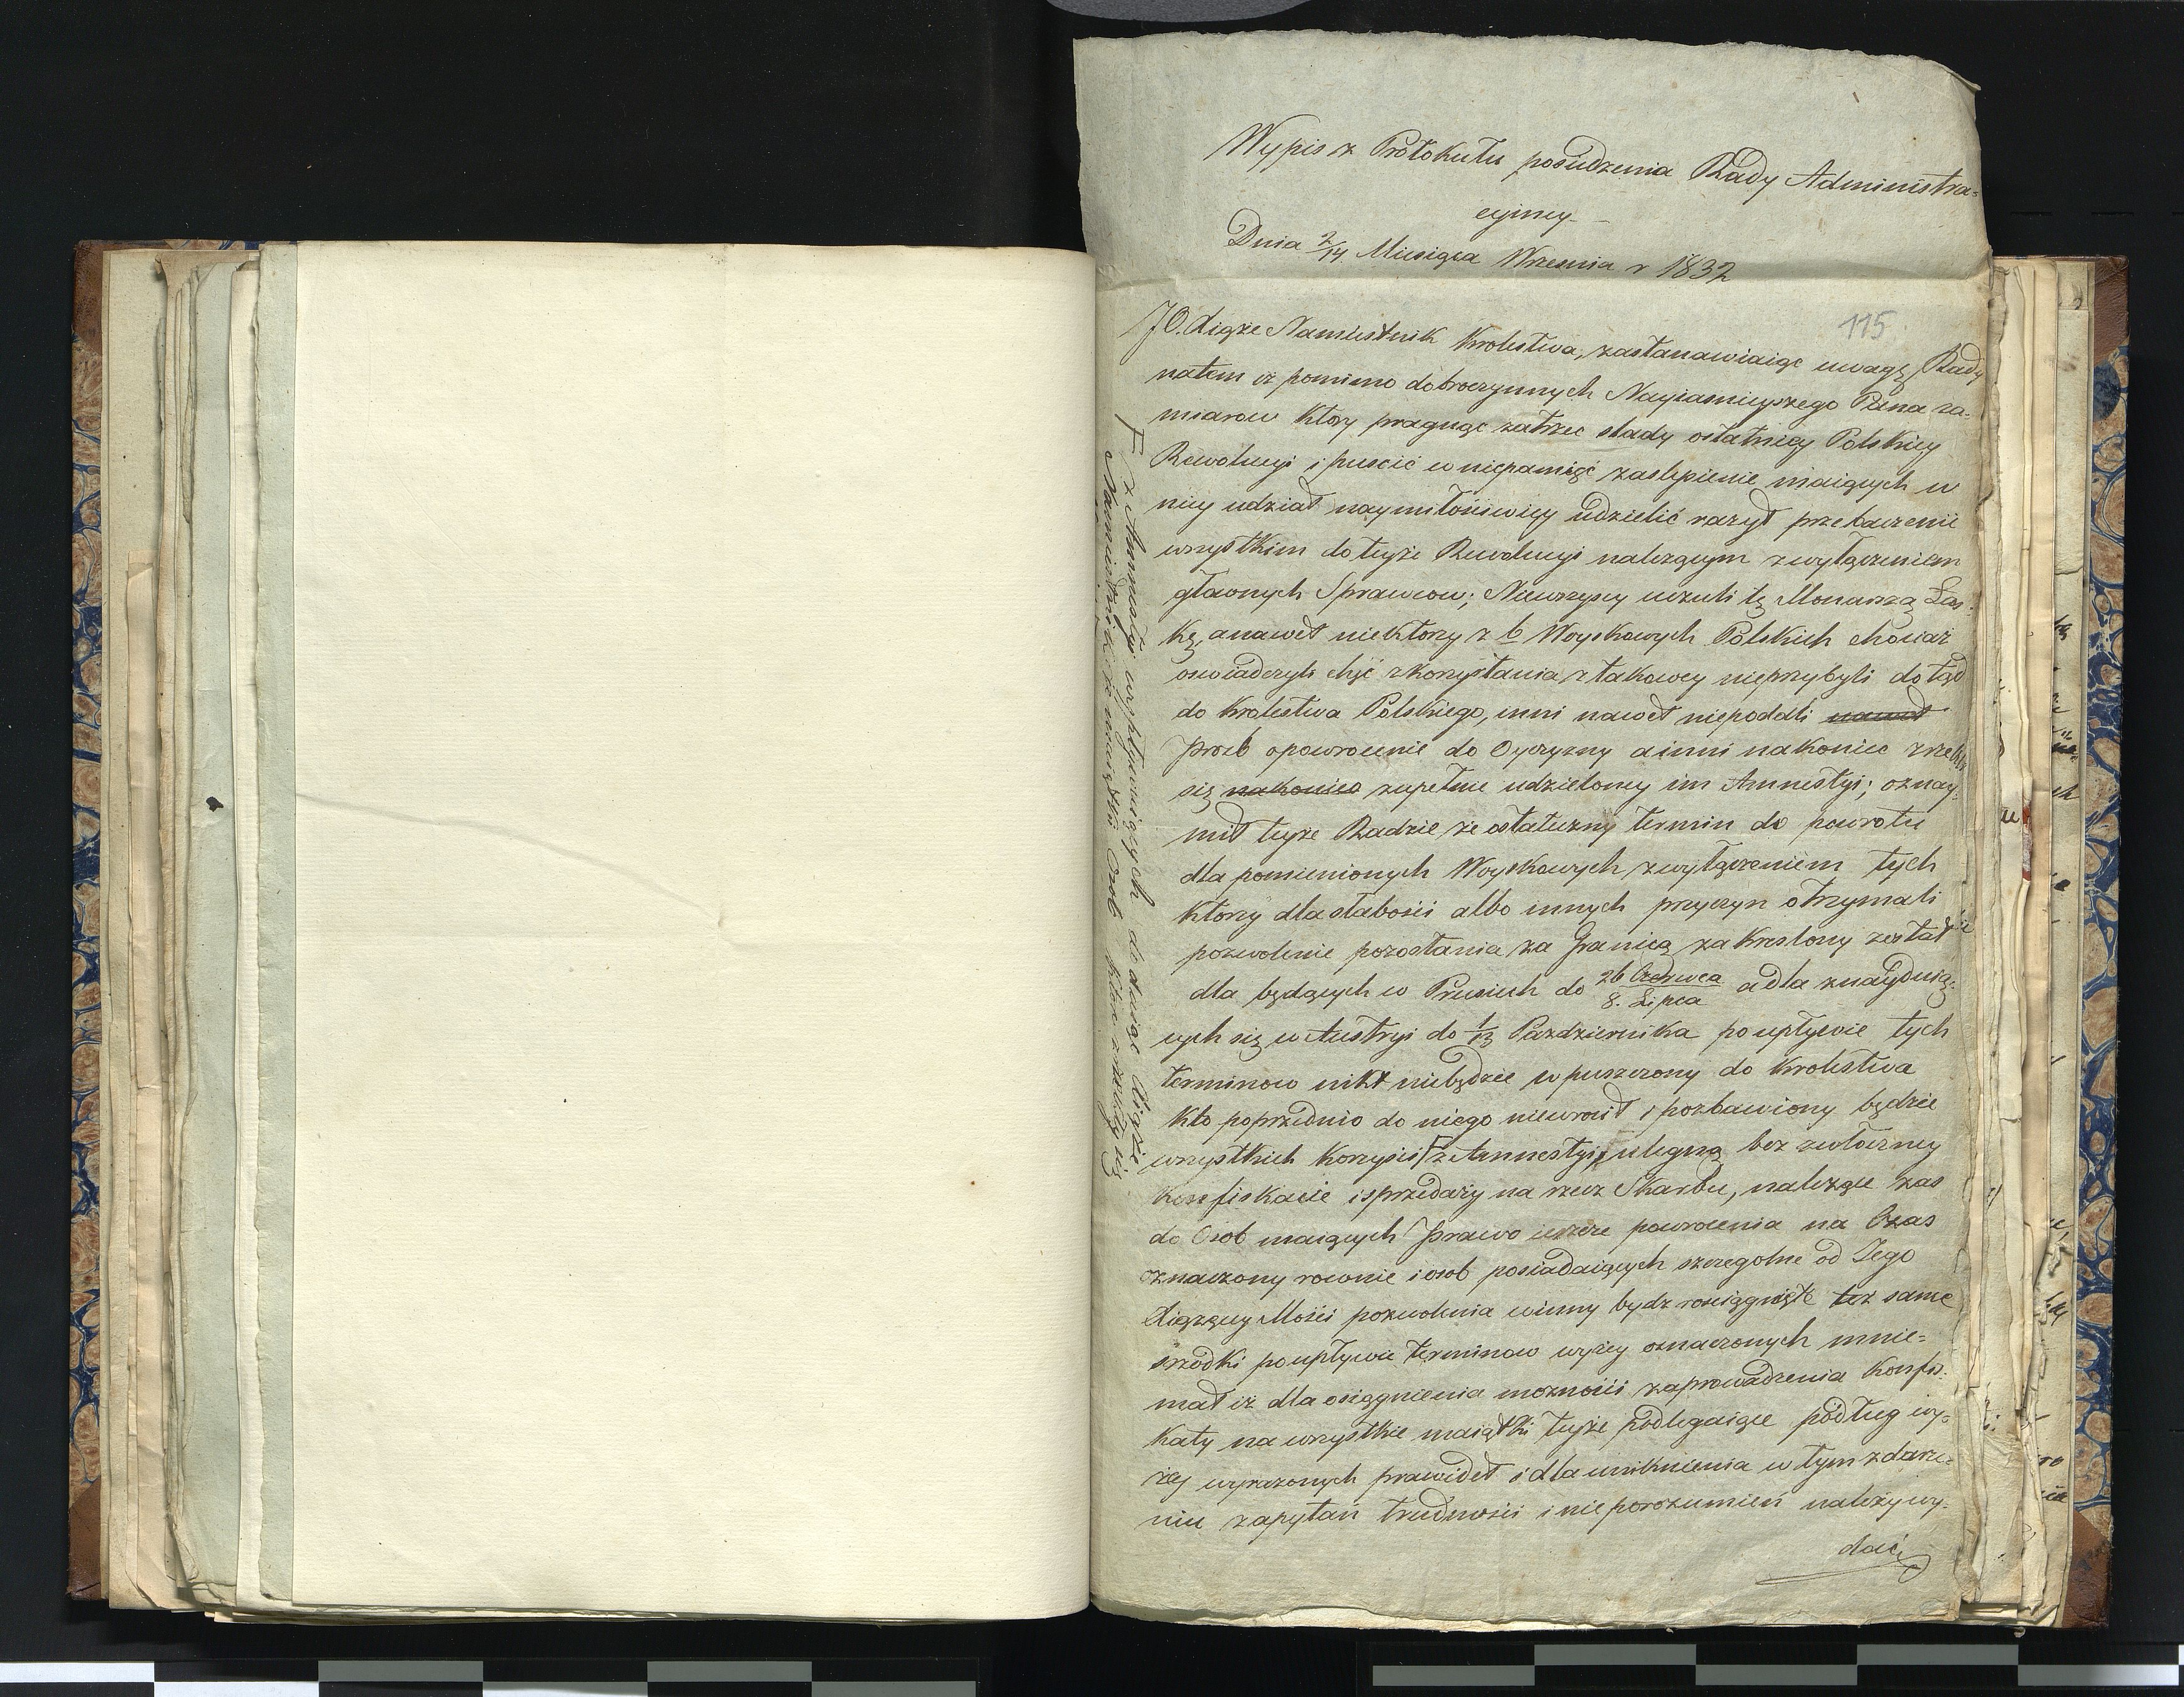 Wypis z Protokułu posiedzenia Rady Administra=
cyjney
Dnia 2/14 Miesiąca Wrzesnia r 1832
115
JO. Xiąże Namiestnik Krolestwa, zastanawiaiąc uwagę Rady
natem iż pomimo dobroczynnych Nayiasnieyszego Pana za-
miarow ktory pragnąc zatrzec slady ostatniey Polskiey
Rewolucyi i puscić w niepamięć zaslepienie maiących w
niey udział naymiłościwiey udzielić raczył przebaczenie
wszystkim do teyże Rewolucyi należącym z wyłączeniem
głownych Sprawcow; Niewszyscy uczuli tę Monarszą Łas-
kę, anawet niektorzy z b Woyskowych Polskich chociaż
oswiadczyli chęć zkorzystania z takowey nieprzybyli dotąd
do Krolestwa Polskiego, inni nawet niepodali nawet
prozb opowrocenie do Oyczyzny a inni nakoniec zrzekli
się nakoniec zupełnie udzieloney im Amnestyi; oznay-
mił teyże Radzie że ostateczny termin do powrotu
dla pomienionych Woyskowych z wyłączeniem tych
ktorzy dla słabości albo innych przyczyn otrzymali
pozwolenie pozostania za Granicą zakreslony został
dla będących w Prusiech do 26 Czerwca / 8. Lipca a dla znayduią-
cych się w Austryi do 1/13 Pazdziernika po upływie tych
terminow nikt niebędzie wpuszczony do Krolestwa
kto poprzednio do niego niewrocił i pozbawiony będzie
wszystkich korzyści F z Amnestyi, ulegną bez zwłoczney
konfiskacie i sprzedaży na rzecz Skarbu, należące zas
do Osob maiących prawo ieszcze powrocenia na Czas
oznaczony rownie i osob posiadaiących szczegolne od Jego
Xiążęcey Mości pozwolenia winny bydz rosciągnięte też same
srzodki po upływie terminow wyżey oznaczonych mnie=
mał iż dla osiągnienia możności zaprowadzenia konfis-
katy na wszystkie maiątki teyże podlegaiące podług wy-
żey wyrazonych prawideł i dla uniknienia w tym zdarze-
niu zapytań trudności i nieporozumień należy wy-
dać
F z Amnestyi wypływaiących dodaiąc Xiąże
Namiestnik iż maiątki Osob ktore zrzekły się